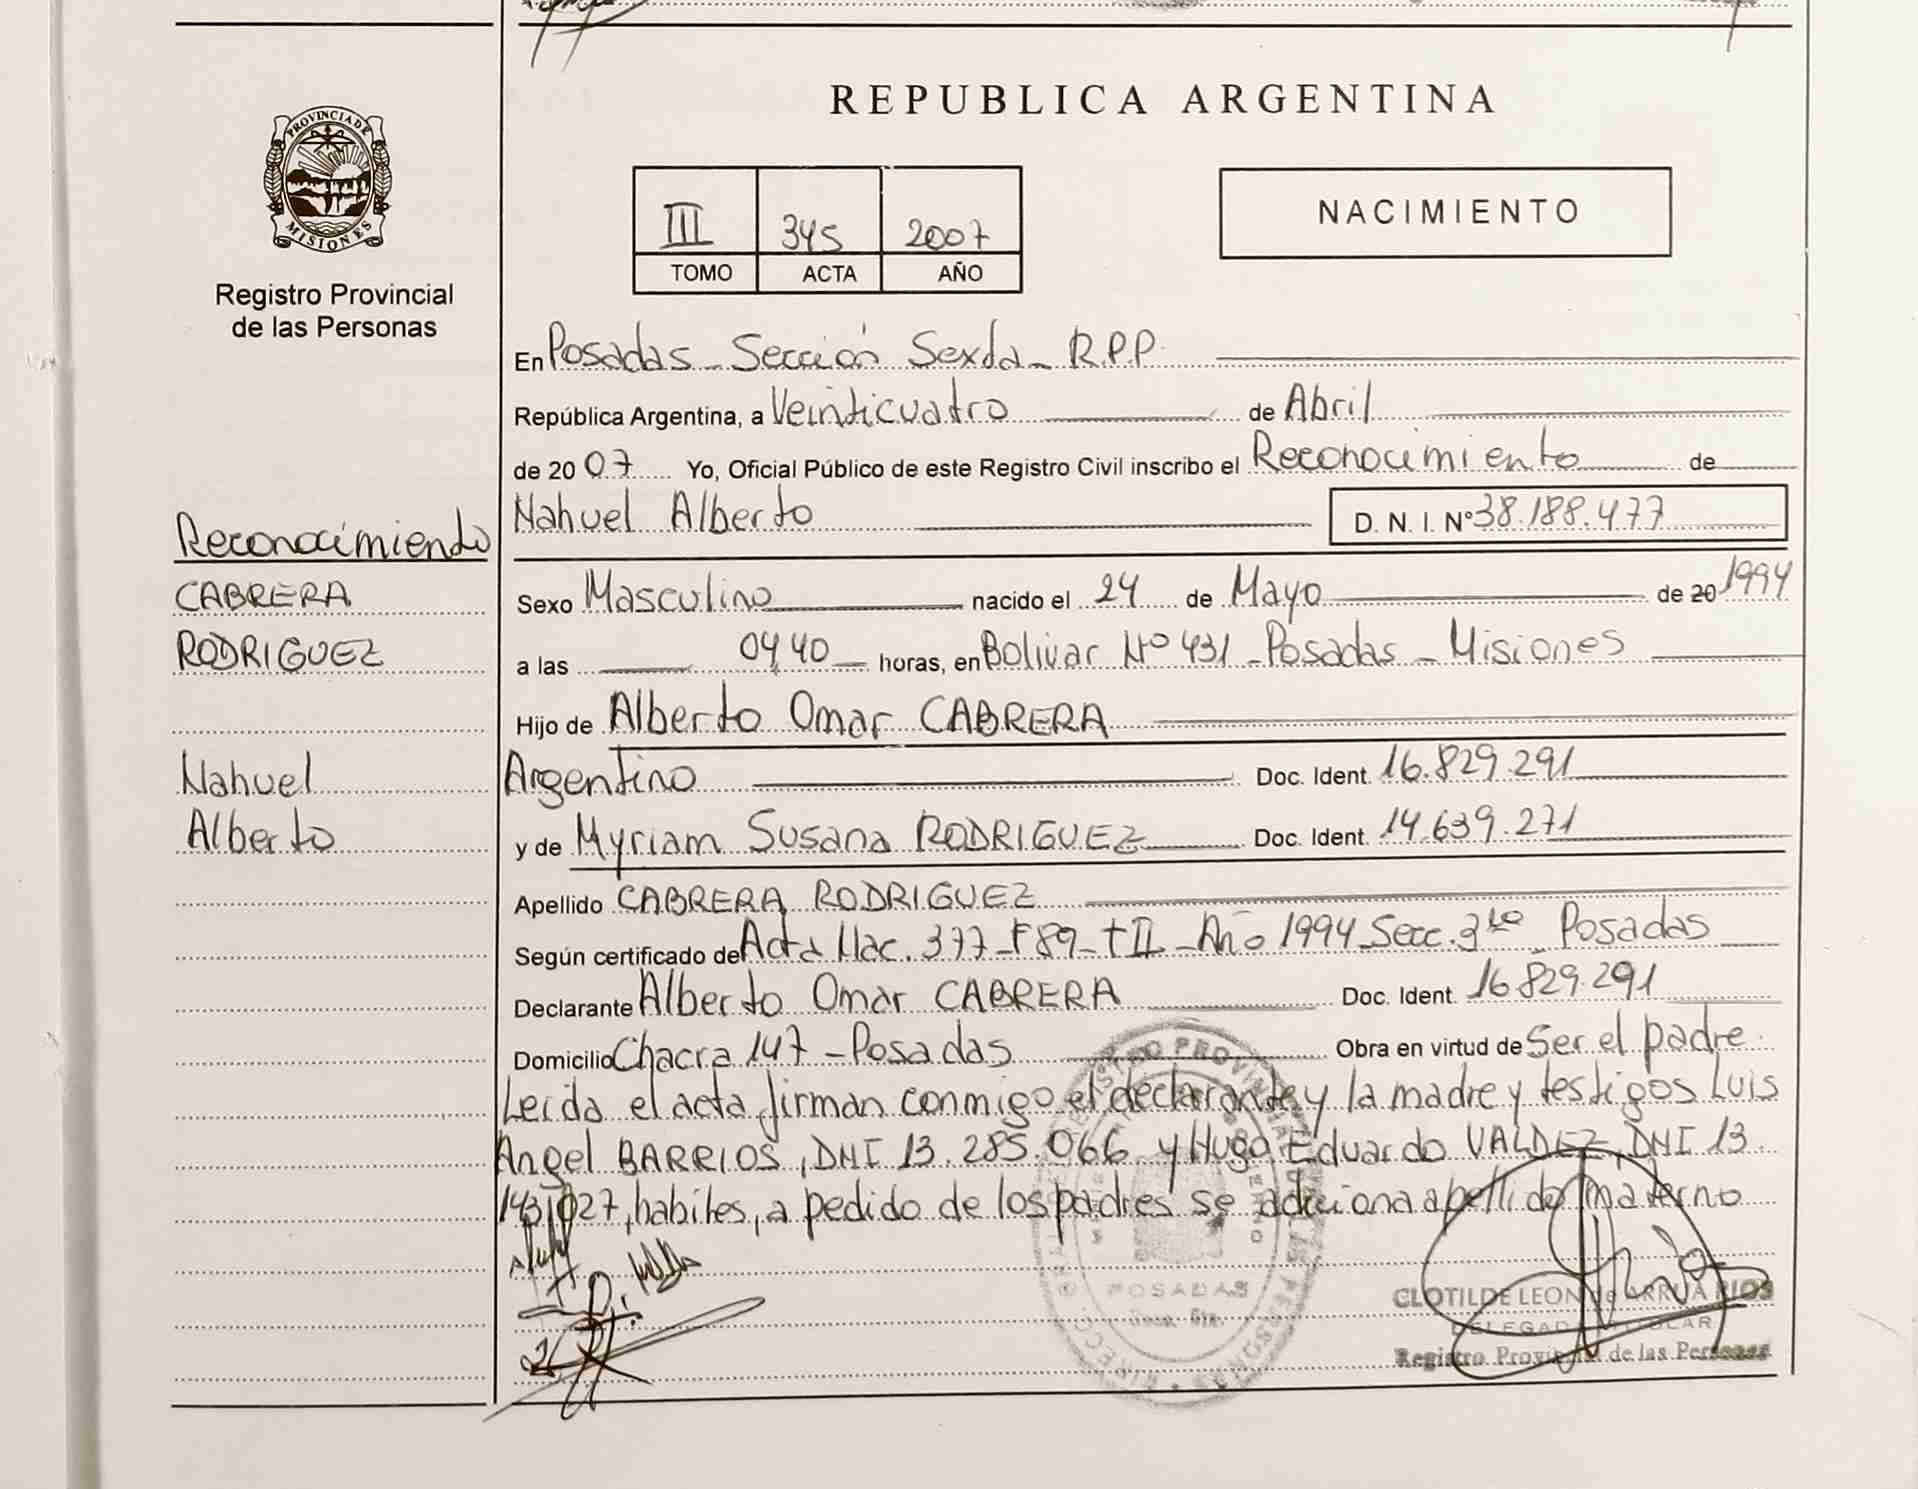 REPUBLICA ARGENTINA
PROVINCIA DE
MISIONES
Registro Provincial
de las Personas
III 345 2007
TOMO ACTA AÑO
NACIMIENTO
En Posadas - Sección Sexta - R.P.P.
República Argentina, a Veinticuatro de Abril
de 20 07 Yo, Oficial Público de este Registro Civil inscribo el Reconocimiento de
Nahuel Alberto D. N. I. Nº 38.188.477
Reconocimiento
CABRERA
RODRIGUEZ
Nahuel
Alberto
Sexo Masculino nacido el 24 de Mayo de 20 1994
a las 04,40 horas, en Bolivar Nº 431 - Posadas - Misiones
Hijo de Alberto Omar CABRERA
Argentino Doc. Ident. 16.829.291
y de Myriam Susana RODRIGUEZ Doc. Ident. 14.639.271
Apellido CABRERA RODRIGUEZ
Según certificado de Acta Nac. 377 - F 89 - t II - Año 1994 Secc. 3ra Posadas
Declarante Alberto Omar CABRERA Doc. Ident. 16.829.291
Domicilio Chacra 147 - Posadas Obra en virtud de Ser el padre
Leida el acta firman conmigo el declarante y la madre y testigos Luis
Angel BARRIOS, DNI 13.285.066 y Hugo Eduardo VALDEZ, DNI 13.
143.027, habiles, a pedido de los padres se adiciona apellido materno
POSADAS
CLOTILDE LEON de ARRUA RIOS
DELEGADA TITULAR
Registro Provincial de las Personas